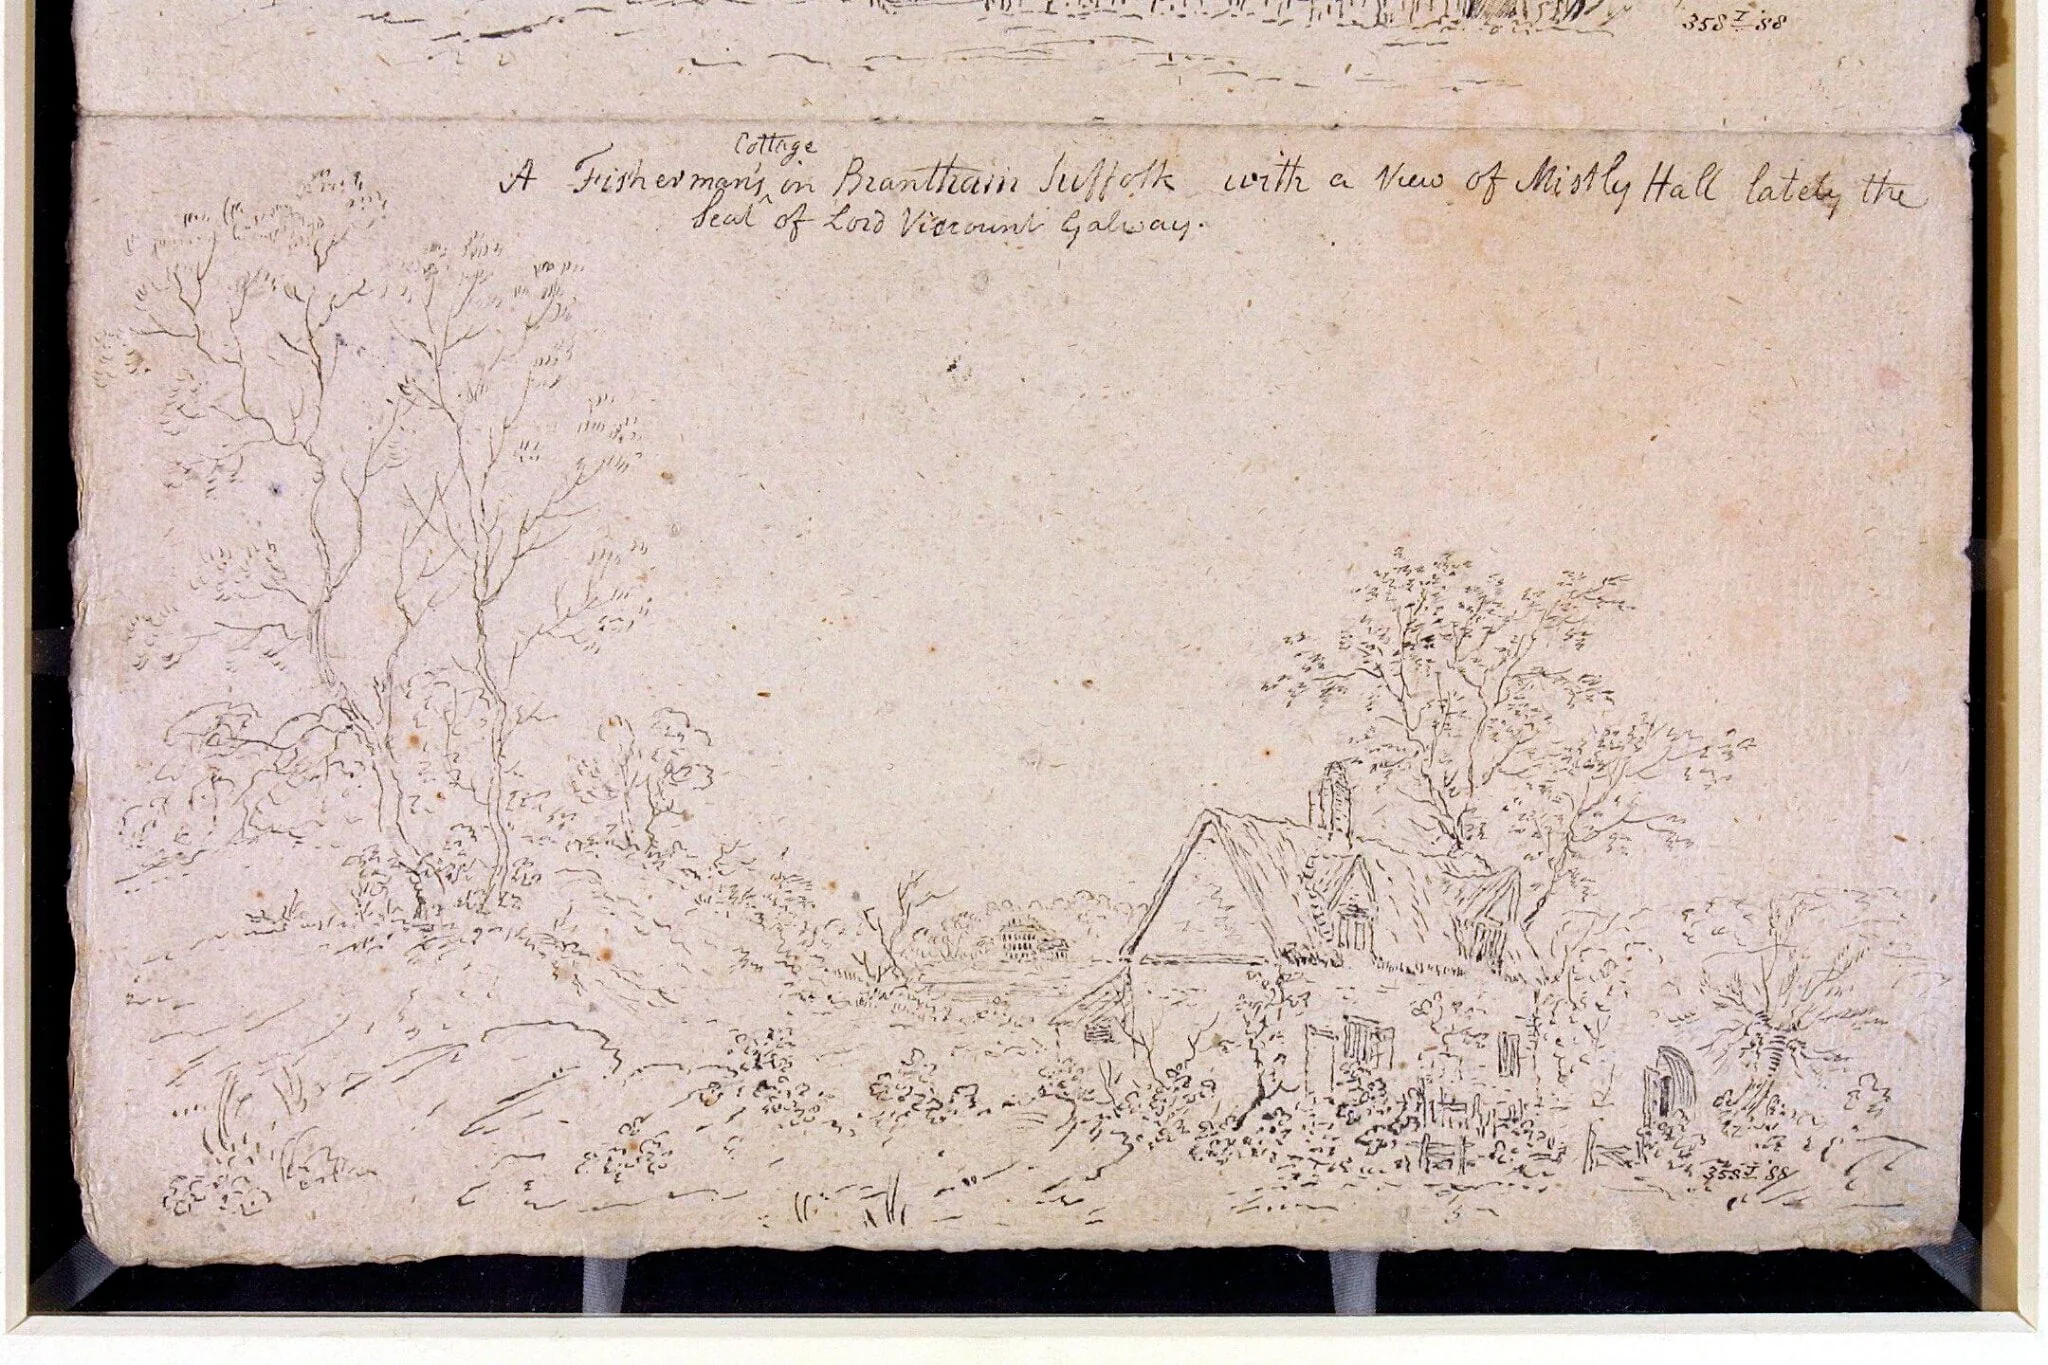 358 I 88
Cottage
A Fisherman's ^ in Brantham Suffolk with a View of Mistly Hall lately the
Seat of Lord Viscount Galway.
358 I 88